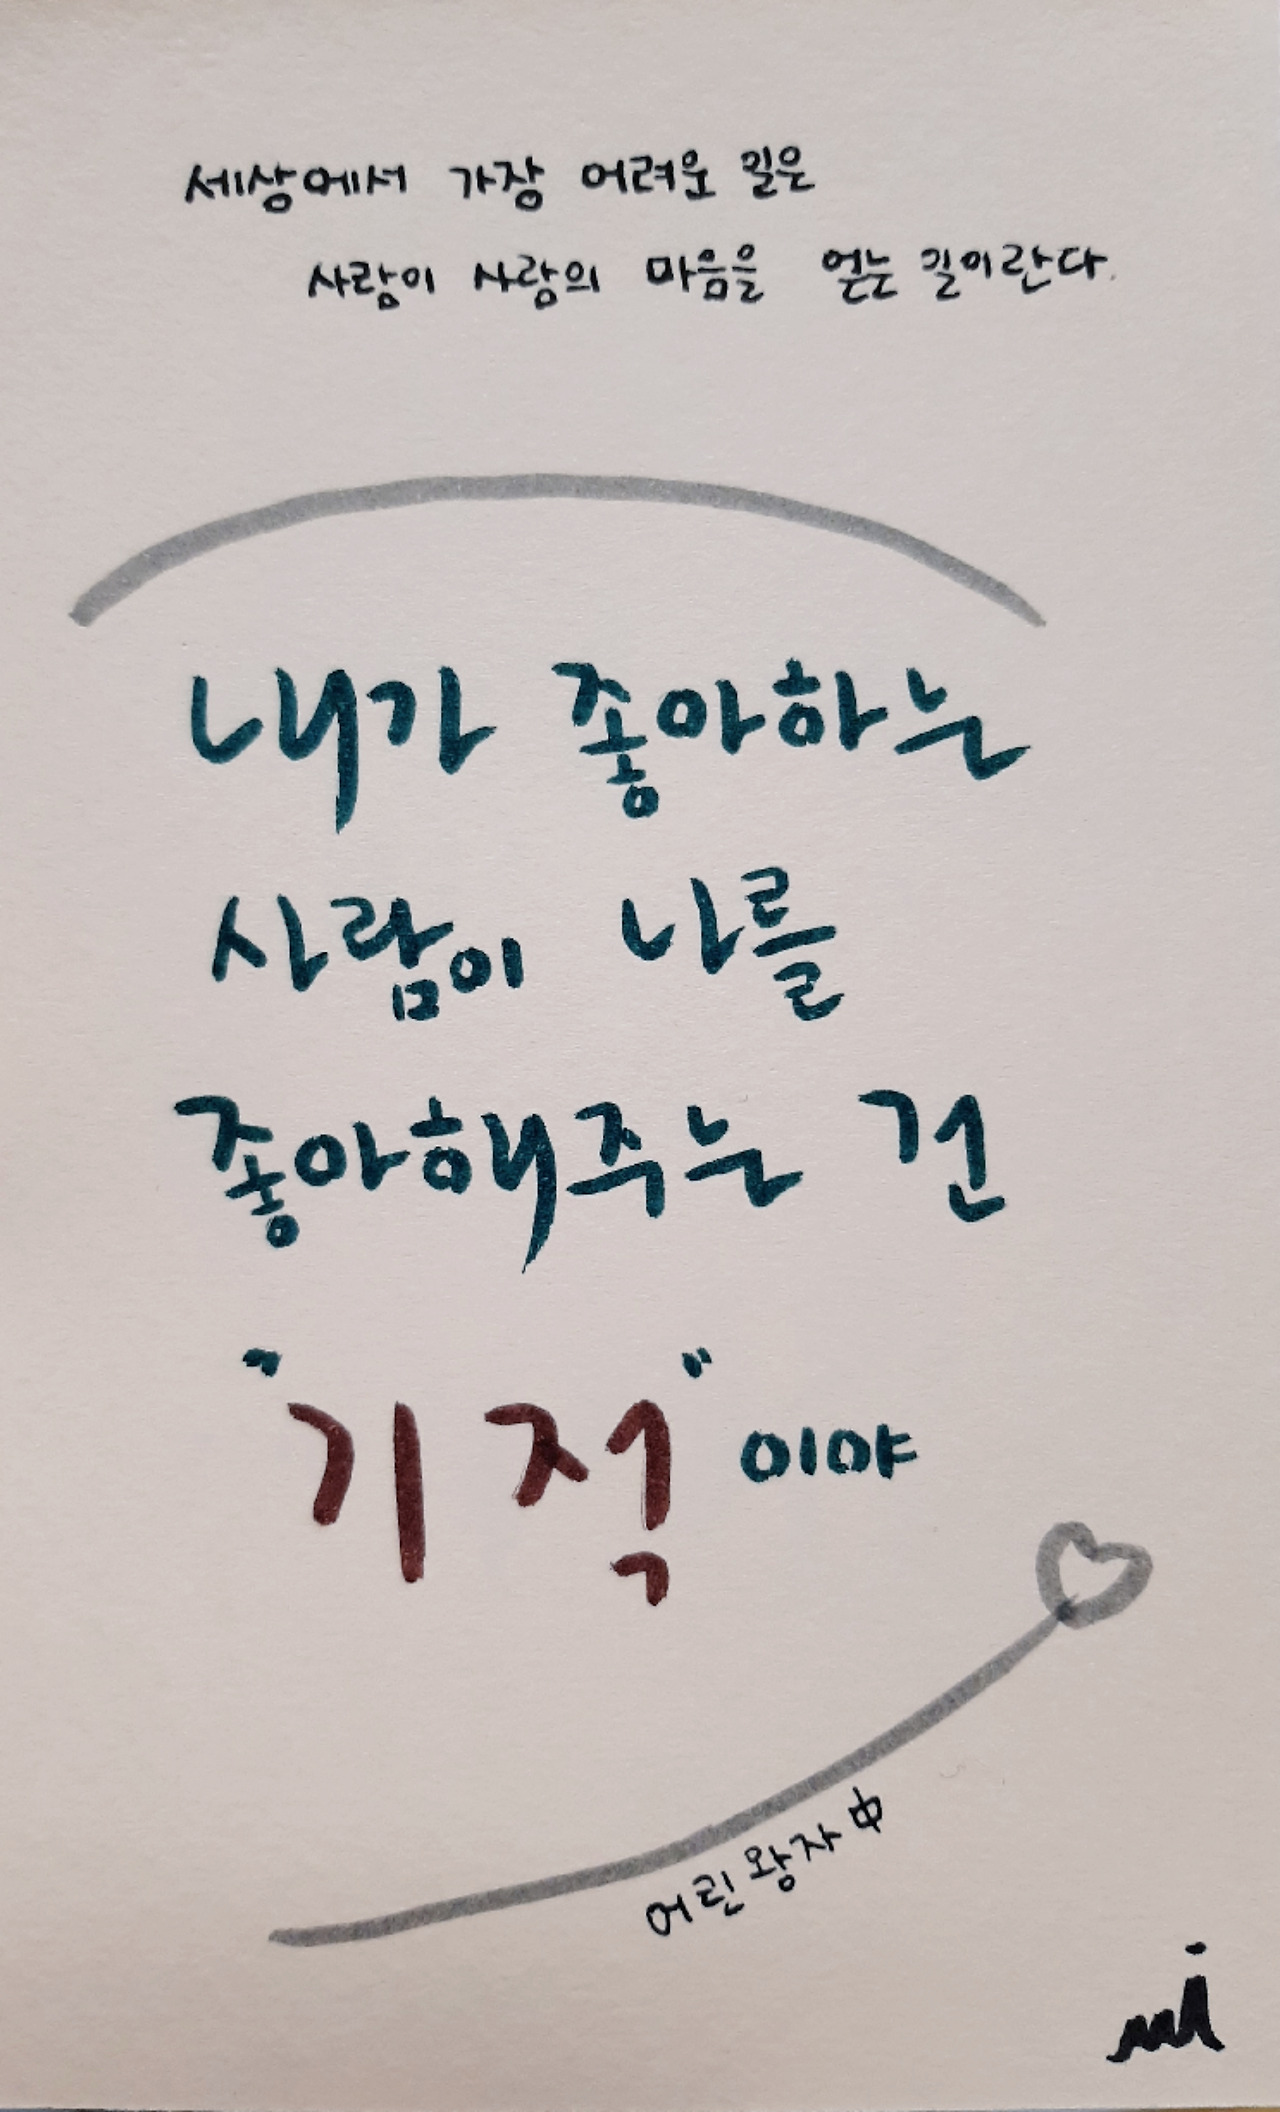 세상에서 가장 어려운 일은
사람이 사람의 마음을 얻는 일이란다.
내가 좋아하는
사람이 나를
좋아해주는 건
"기적"이야
어린왕자 中